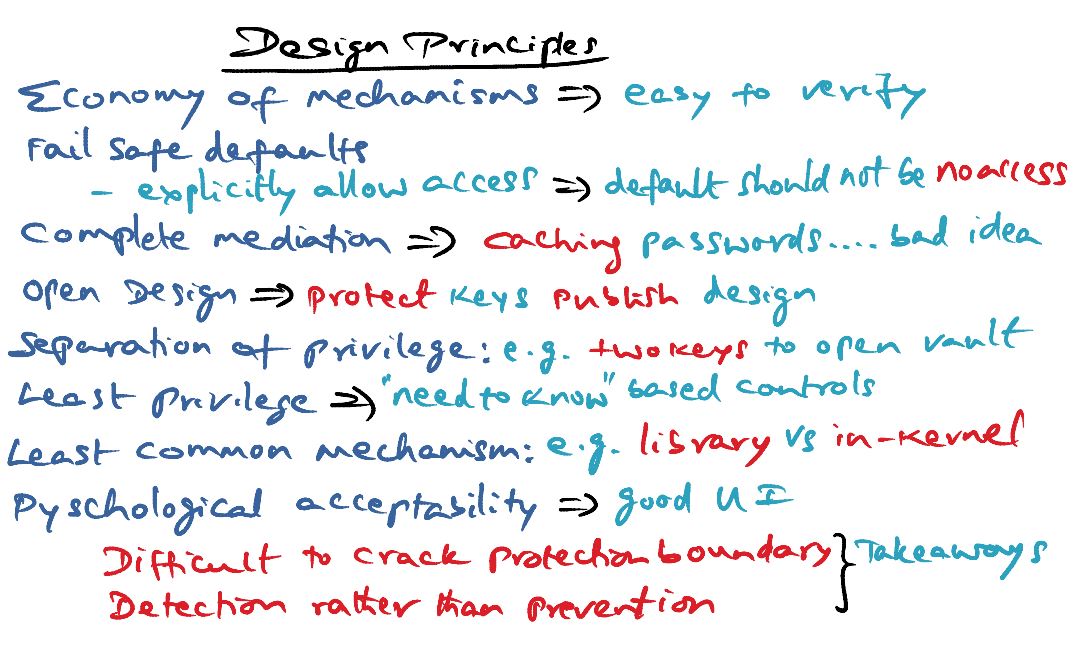 Design Principles
Economy of mechanisms => easy to verify
Fail safe defaults
- explicitly allow access => default should not be no access
Complete mediation => caching passwords.... bad idea
Open Design => protect keys publish design
Separation of privilege: e.g. two keys to open vault
Least Privilege => "need to know" based controls
Least common mechanism: e.g. library vs in-kernel
Pyschological acceptability => good UI
Difficult to crack protection boundary } Takeaways
Detection rather than prevention